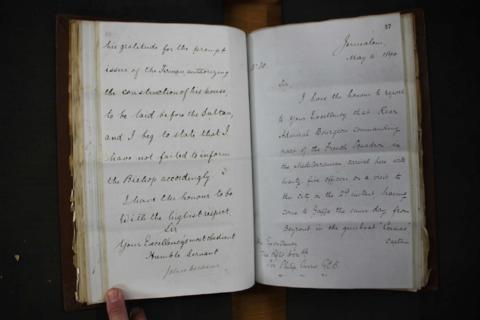 his gratitude for the prompt
issue of the Firman, authorizing
the construction of his house,
to be laid before the Sultan,
and I beg to state that I
have not failed to inform
the Bishop accordingly
I have the honour to be
With the highest respect
Sir
Your Excellency's most obedient
Humble Servant
37
Jerusalem,
May 6
Sir,
I have the honour to report
to Your Excellency that Rear
Admiral Bourgeois Commanding
part of the French Squadron in
the Mediterranean arrived here with
twenty five officers on a visit to
the city on the 2d instant having
come to Jaffa the same day from
Beyrout in the gunboat
Captain
His Excellency
The Right Honble
Sir Philip Currie G.C.B.